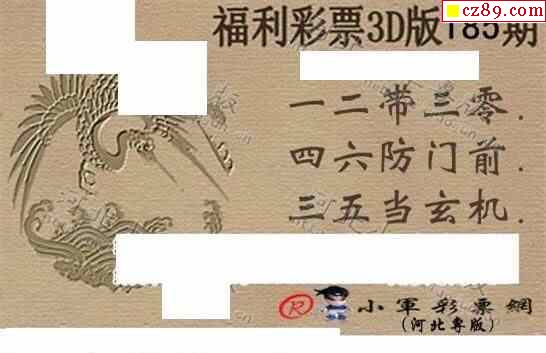 cz89.com
福利彩票3D版185期
一二带三零.
四六防门前.
三五当玄机.
R 小軍彩票網
(河北粤版)